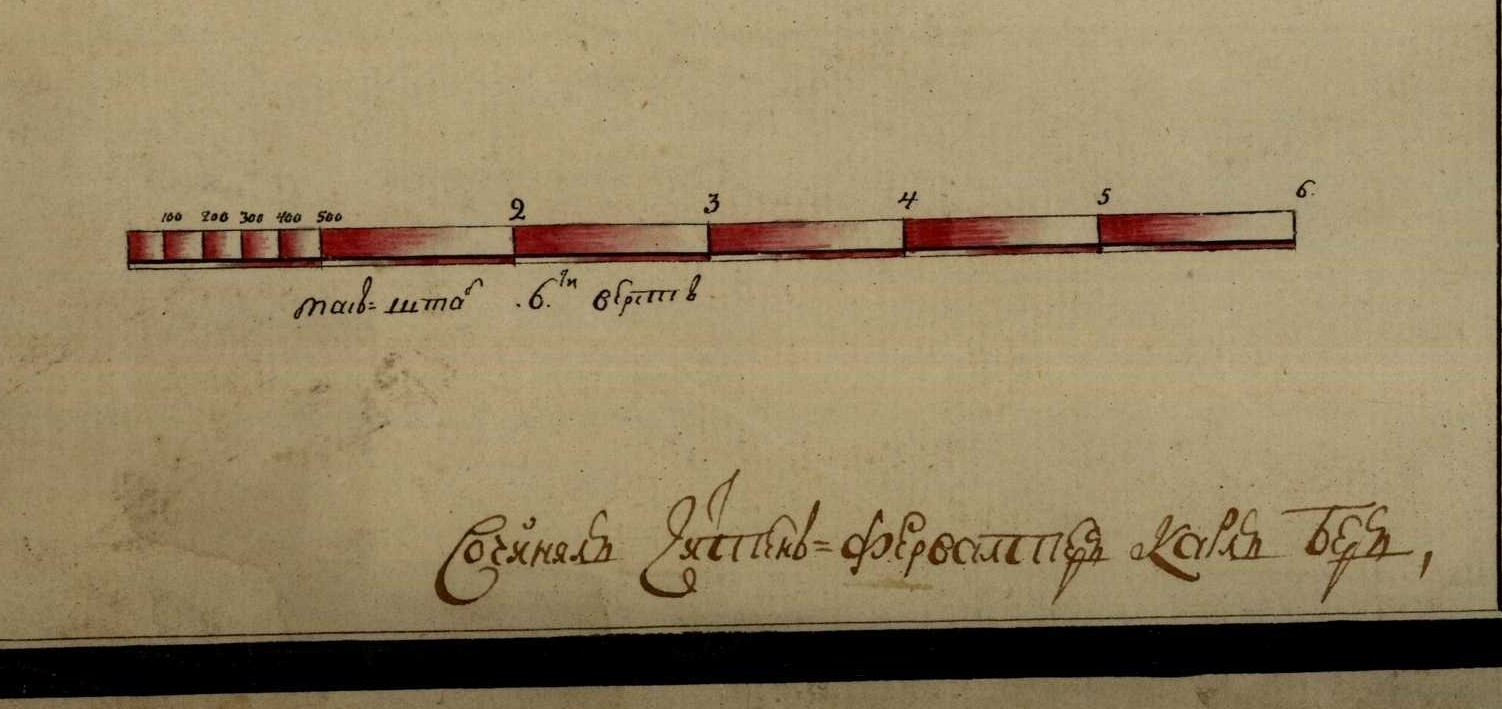 100 200 300 400 500 2 3 4 5 6.
маш=штаб .6.ти верстъ
Сочинялъ Гитенъ=Ферваλтеръ Карлъ Беръ,